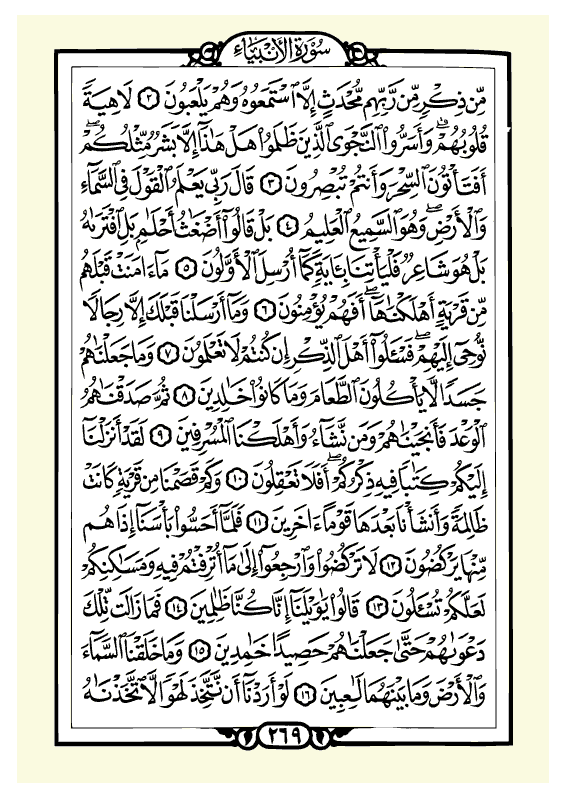 سُورَةُ الأَنْبِيَاءِ
مِّن ذِكْرٍ مِّن رَّبِّهِم مُّحْدَثٍ إِلَّا اَسْتَمَعُوهُ وَهُمْ يَلْعَبُونَ ٢ لَاهِيَةً
قُلُوبُهُمْ وَأَسَرُّواْ اُلنَّجْوَى اَلذِينَ ظَلَمُواْ هَلْ هَٰذَا إِلَّا بَشَرٌ مِّثْلُكُمْ
أَفَتَأْتُونَ اَلسِّحْرَ وَأَنتُمْ تُبْصِرُونَ ٣ قَالَ رَبِّي يَعْلَمُ اُلْقَوْلَ فِي اِلسَّمَآءِ
وَالْأَرْضِ وَهُوَ اَلسَّمِيعُ اُلْعَلِيمُ ٤ بَلْ قَالُوٓاْ أَضْغَٰثُ أَحْلَٰمِ بَلِ اِفْتَرَىٰهُ
بَلْ هُوَ شَاعِرٌ فَلْيَأْتِنَا بِـَٔايَةٍ كَمَآ أُرْسِلَ اَلْأَوَّلُونَ ٥ مَآ ءَامَنَتْ قَبْلَهُم
مِّن قَرْيَةٍ أَهْلَكْنَٰهَآ أَفَهُمْ يُؤْمِنُونَ ٦ وَمَآ أَرْسَلْنَا قَبْلَكَ إِلَّا رِجَالًا
نُّوحِىٓ إِلَيْهِمْ فَسْـَٔلُوٓاْ أَهْلَ اَلذِّكْرِ إِن كُنتُمْ لَا تَعْلَمُونَ ٧ وَمَا جَعَلْنَٰهُمْ
جَسَدًا لَّا يَأْكُلُونَ اَلطَّعَامَ وَمَا كَانُواْ خَٰلِدِينَ ٨ ثُمَّ صَدَقْنَٰهُمُ
اُلْوَعْدَ فَأَنجَيْنَٰهُمْ وَمَن نَّشَآءُ وَأَهْلَكْنَا اَلْمُسْرِفِينَ ٩ لَقَدْ أَنزَلْنَآ
إِلَيْكُمْ كِتَٰبًا فِيهِ ذِكْرُكُمْ أَفَلَا تَعْقِلُونَ ١٠ وَكَمْ قَصَمْنَا مِن قَرْيَةٍ كَانَتْ
ظَالِمَةً وَأَنشَأْنَا بَعْدَهَا قَوْمًا ءَاخَرِينَ ١١ فَلَمَّآ أَحَسُّواْ بَأْسَنَآ إِذَا هُم
مِّنْهَا يَرْكُضُونَ ١٢ لَا تَرْكُضُواْ وَارْجِعُوٓاْ إِلَىٰ مَآ أُتْرِفْتُمْ فِيهِ وَمَسَٰكِنِكُمْ
لَعَلَّكُمْ تُسْـَٔلُونَ ١٣ قَالُواْ يَٰوَيْلَنَآ إِنَّا كُنَّا ظَٰلِمِينَ ١٤ فَمَا زَالَت تِّلْكَ
دَعْوَىٰهُمْ حَتَّىٰ جَعَلْنَٰهُمْ حَصِيدًا خَٰمِدِينَ ١٥ وَمَا خَلَقْنَا اَلسَّمَآءَ
وَالْأَرْضَ وَمَا بَيْنَهُمَا لَٰعِبِينَ ١٦ لَوْ أَرَدْنَآ أَن نَّتَّخِذَ لَهْوًا لَّاتَّخَذْنَٰهُ
٢٦٩